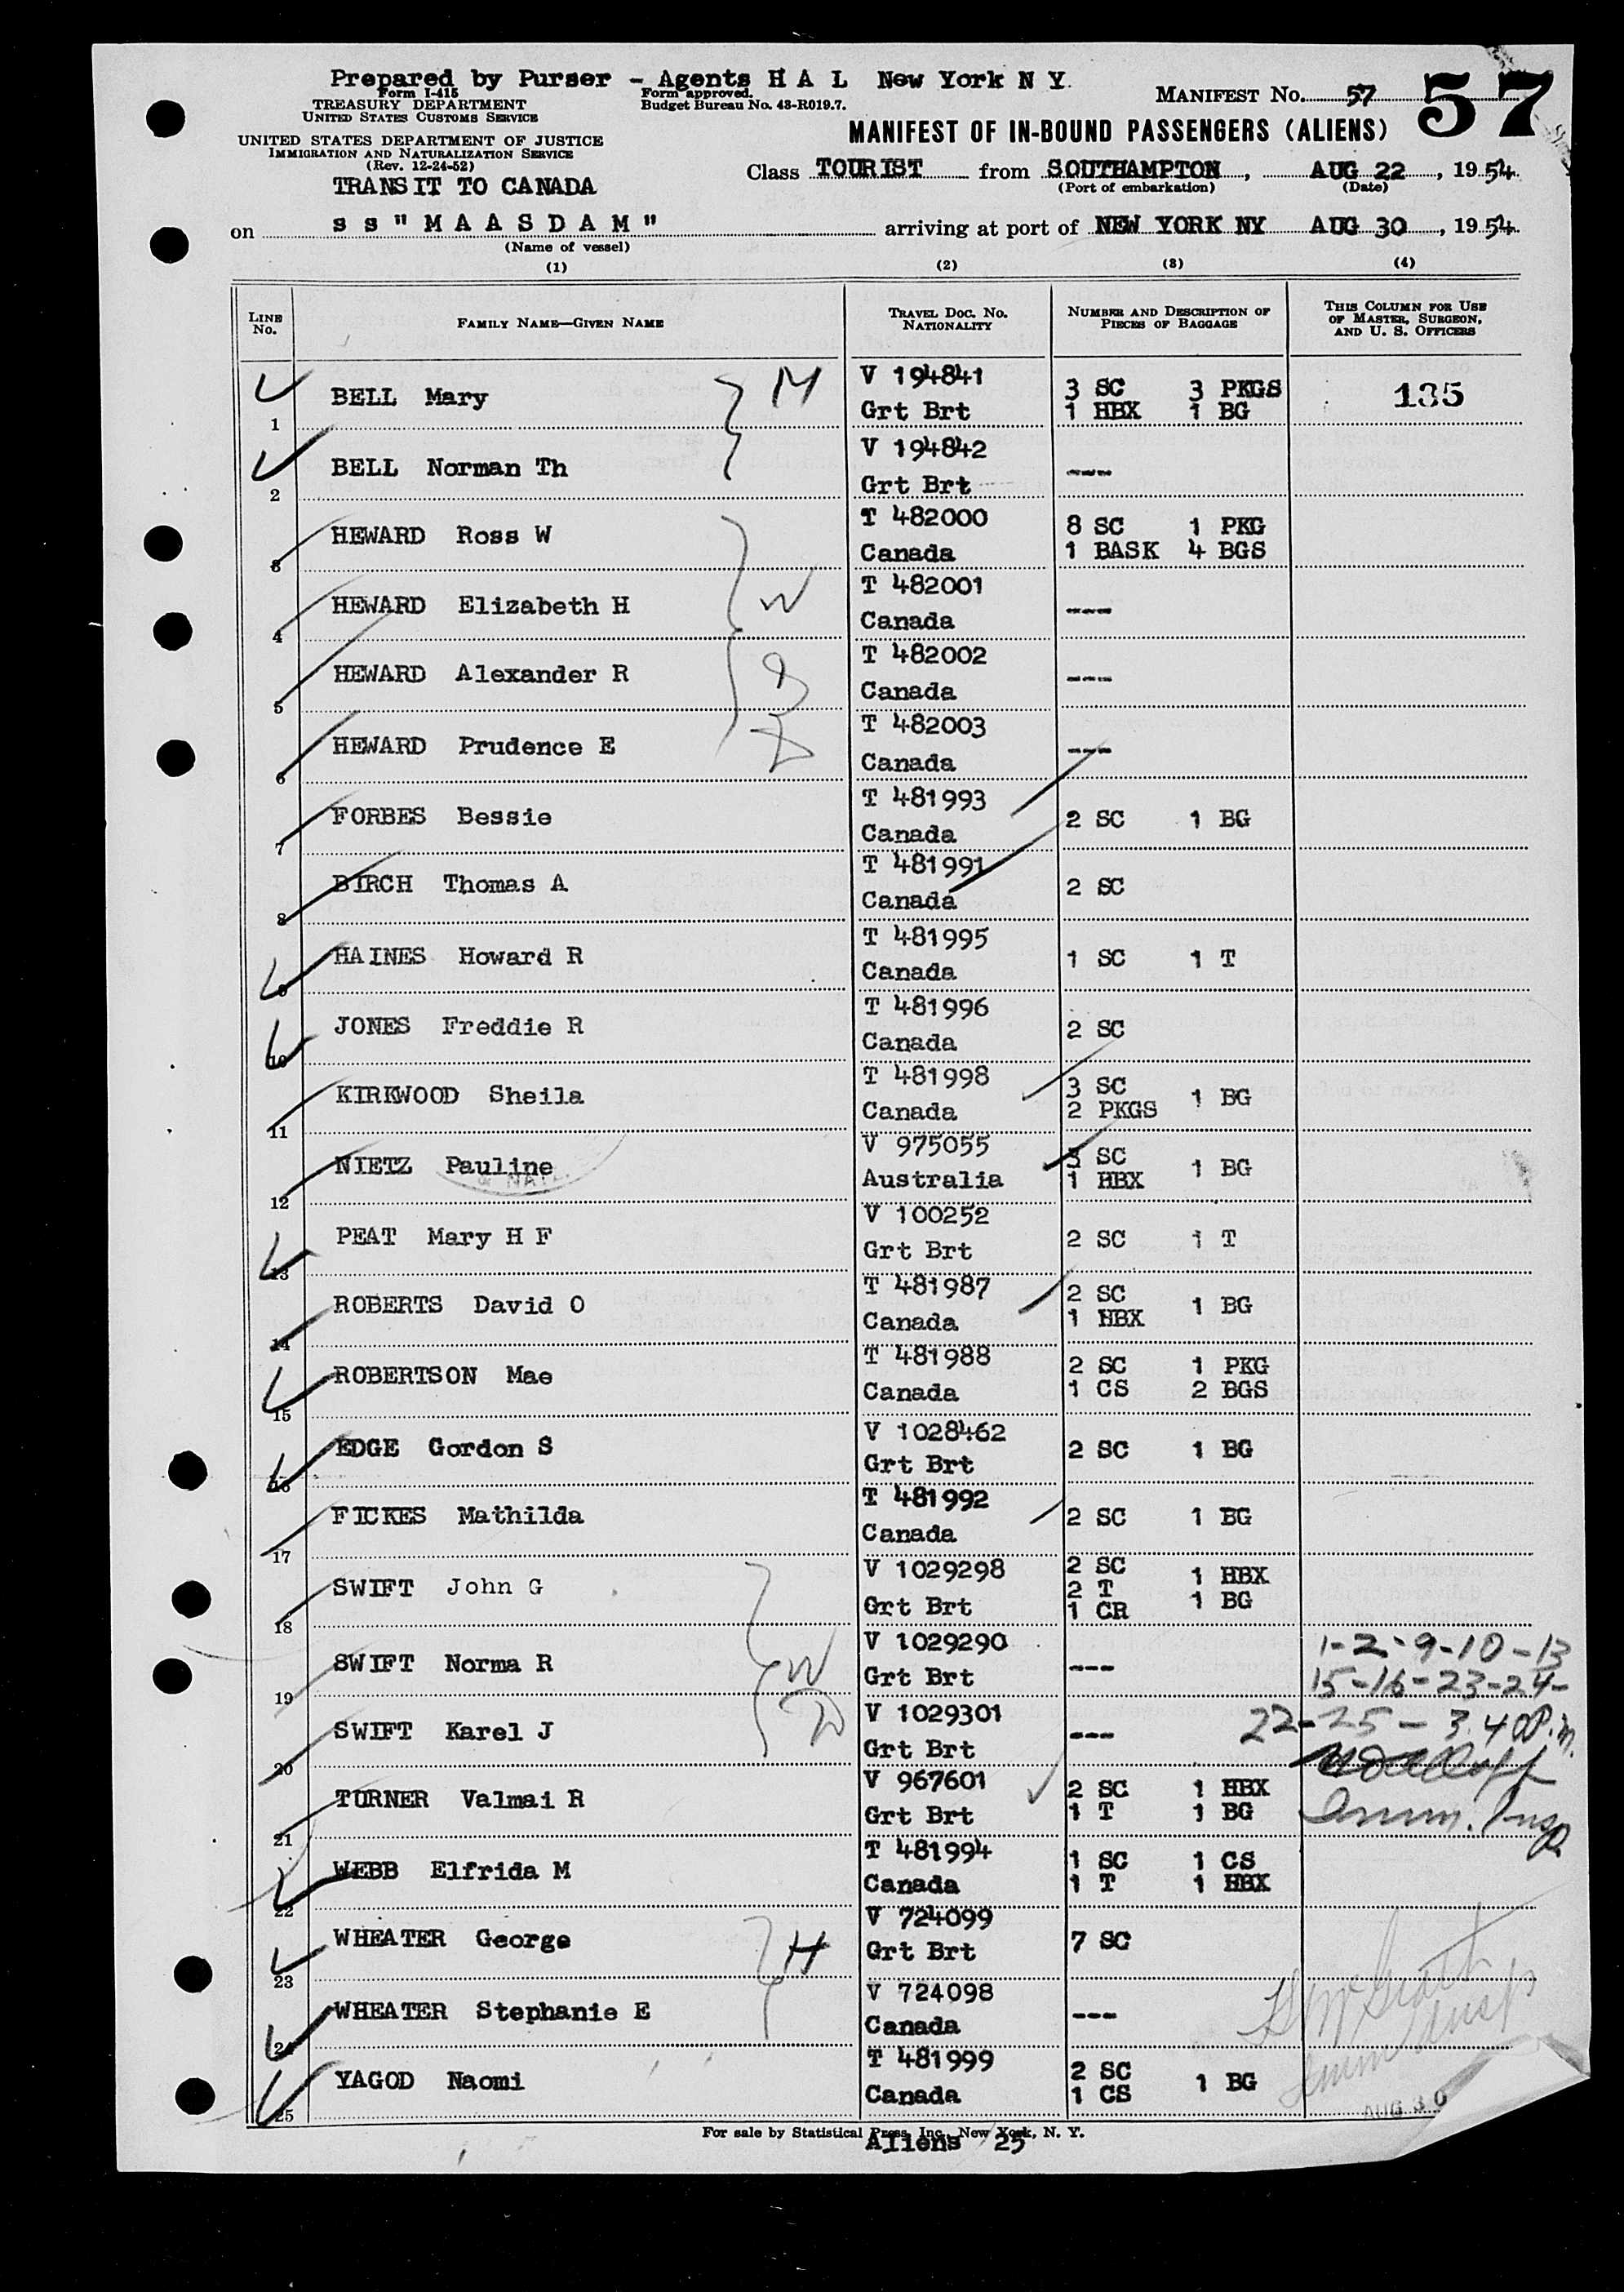 Prepared by Purser - Agents H A L New York N Y.
Form I-415
TREASURY DEPARTMENT
UNITED STATES CUSTOMS SERVICE
Form approved.
Budget Bureau No. 43-R019.7.
MANIFEST No. 57
57
UNITED STATES DEPARTMENT OF JUSTICE
IMMIGRATION AND NATURALIZATION SERVICE
(Rev. 12-24-52)
MANIFEST OF IN-BOUND PASSENGERS (ALIENS)
TRANSIT TO CANADA
Class TOURIST from SOUTHAMPTON, AUG 22, 1954
(Port of embarkation) (Date)
on s s " M A A S D A M " arriving at port of NEW YORK NY AUG 30, 1954
(Name of vessel)
(1) (2) (3) (4)
LINE No. FAMILY NAME—GIVEN NAME TRAVEL DOC. NO. NATIONALITY NUMBER AND DESCRIPTION OF PIECES OF BAGGAGE THIS COLUMN FOR USE OF MASTER, SURGEON, AND U. S. OFFICERS
V 194841 3 SC 3 PKGS 135
1 BELL Mary M Grt Brt 1 HBX 1 BG
V 194842
2 BELL Norman Th Grt Brt ---
T 482000 8 SC 1 PKG
3 HEWARD Ross W Canada 1 BASK 4 BGS
T 482001
4 HEWARD Elizabeth H W Canada ---
T 482002
5 HEWARD Alexander R Canada ---
T 482003
6 HEWARD Prudence E Canada ---
T 481993
7 FORBES Bessie Canada 2 SC 1 BG
T 481991
8 BIRCH Thomas A Canada 2 SC
T 481995
9 HAINES Howard R Canada 1 SC 1 T
T 481996
10 JONES Freddie R Canada 2 SC
T 481998 3 SC
11 KIRKWOOD Sheila Canada 2 PKGS 1 BG
V 975055 3 SC
12 NIETZ Pauline Australia 1 HBX 1 BG
& NAT
V 100252
13 PEAT Mary H F Grt Brt 2 SC 1 T
T 481987 2 SC
14 ROBERTS David O Canada 1 HBX 1 BG
T 481988 2 SC 1 PKG
15 ROBERTSON Mae Canada 1 CS 2 BGS
V 1028462
16 EDGE Gordon S Grt Brt 2 SC 1 BG
T 481992
17 FICKES Mathilda Canada 2 SC 1 BG
V 1029298 2 SC 1 HBX
2 T 1 BG
18 SWIFT John G Grt Brt 1 CR
V 1029290 1-2-9-10-13
19 SWIFT Norma R W Grt Brt --- 15-16-23-24-
V 1029301 22-25- 3.40P.m.
20 SWIFT Karel J Grt Brt ---
V 967601 2 SC 1 HBX
21 TURNER Valmai R Grt Brt 1 T 1 BG Imm. Insp
T 481994 1 SC 1 CS
22 WEBB Elfrida M Canada 1 T 1 HBX
V 724099
23 WHEATER George H Grt Brt 7 SC
V 724098
24 WHEATER Stephanie E Canada ---
T 481999 2 SC
25 YAGOD Naomi Canada 1 CS 1 BG
Imm Insp
AUG 30
For sale by Statistical Press, Inc., New York, N. Y.
Aliens 25